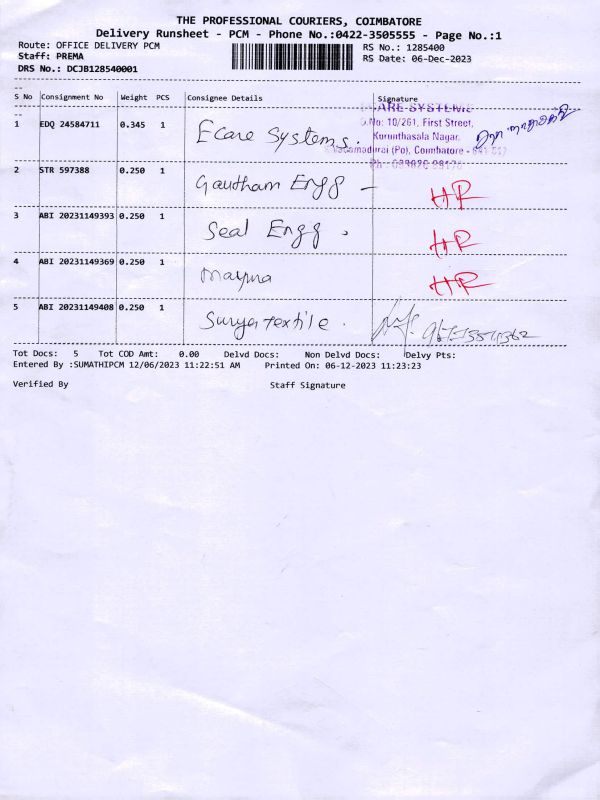 THE PROFESSIONAL COURIERS, COIMBATORE
Delivery Runsheet - PCM - Phone No.:0422-3505555 - Page No.:1
Route: OFFICE DELIVERY PCM
RS No.: 1285400
Staff: PREMA
RS Date: 06-Dec-2023
DRS No.: DCJB128540001
S No Consignment No Weight PCS Consignee Details Signature
1 EDQ 24584711 0.345 1 Ecare Systems.
CARE SYSTEMS
No: 10/261, First Street,
Kurunthasala Nagar,
(Po), Coimbatore -
2 STR 597388 0.250 1 Gautham Engg - HR
3 ABI 20231149393 0.250 1 Seal Engg . HR
4 ABI 20231149369 0.250 1 HR
5 ABI 20231149408 0.250 1 Surya textile .
Tot Docs: 5 Tot COD Amt: 0.00 Delvd Docs: Non Delvd Docs: Delvy Pts:
Entered By :SUMATHIPCM 12/06/2023 11:22:51 AM Printed On: 06-12-2023 11:23:23
Verified By Staff Signature